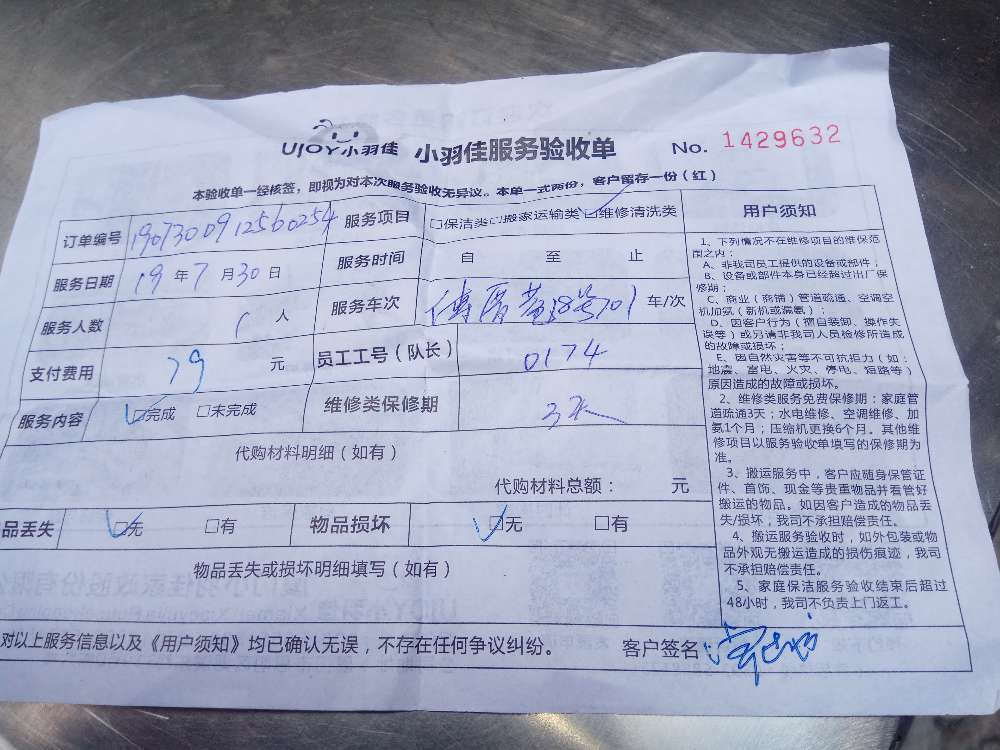 UJOY小羽佳 小羽佳服务验收单 No. 1429632
本验收单一经核签，即视为对本次服务验收无异议。本单一式两份，客户留存一份（红）
订单编号 1907300912560254 服务项目 □保洁类□搬家运输类□维修清洗类 用户须知
服务日期 19 年 7 月 30 日 服务时间 自 至 止
服务人数 1 人 服务车次 28号701 车/次
支付费用 79 元 员工工号（队长） 0174
服务内容 □完成 □未完成 维修类保修期 3天
代购材料明细（如有）
代购材料总额： 元
品丢失 □无 □有 物品损坏 □无 □有
物品丢失或损坏明细填写（如有）
1、下列情况不在维修项目的维保范
围之内：
A、非我司员工提供的设备或部件；
B、设备或部件本身已经超过出厂保
修期；
C、商业（商铺）管道疏通、空调空
机加氨（新机或漏氨）；
D、因客户行为（擅自装卸、操作失
误等）或另请非我司人员检修所造成
的故障或损坏；
E、因自然灾害等不可抗拒力（如：
地震、雷电、火灾、停电、短路等）
原因造成的故障或损坏。
2、维修类服务免费保修期：家庭管
道疏通3天；水电维修、空调维修、加
氨1个月；压缩机更换6个月。其他维
修项目以服务验收单填写的保修期为
准。
3、搬运服务中，客户应随身保管证
件、首饰、现金等贵重物品并看管好
搬运的物品。如因客户造成的物品丢
失/损坏，我司不承担赔偿责任。
4、搬运服务验收时，如外包装或物
品外观无搬运造成的损伤痕迹，我司
不承担赔偿责任。
5、家庭保洁服务验收结束后超过
48小时，我司不负责上门返工。
对以上服务信息以及《用户须知》均已确认无误，不存在任何争议纠纷。 客户签名：